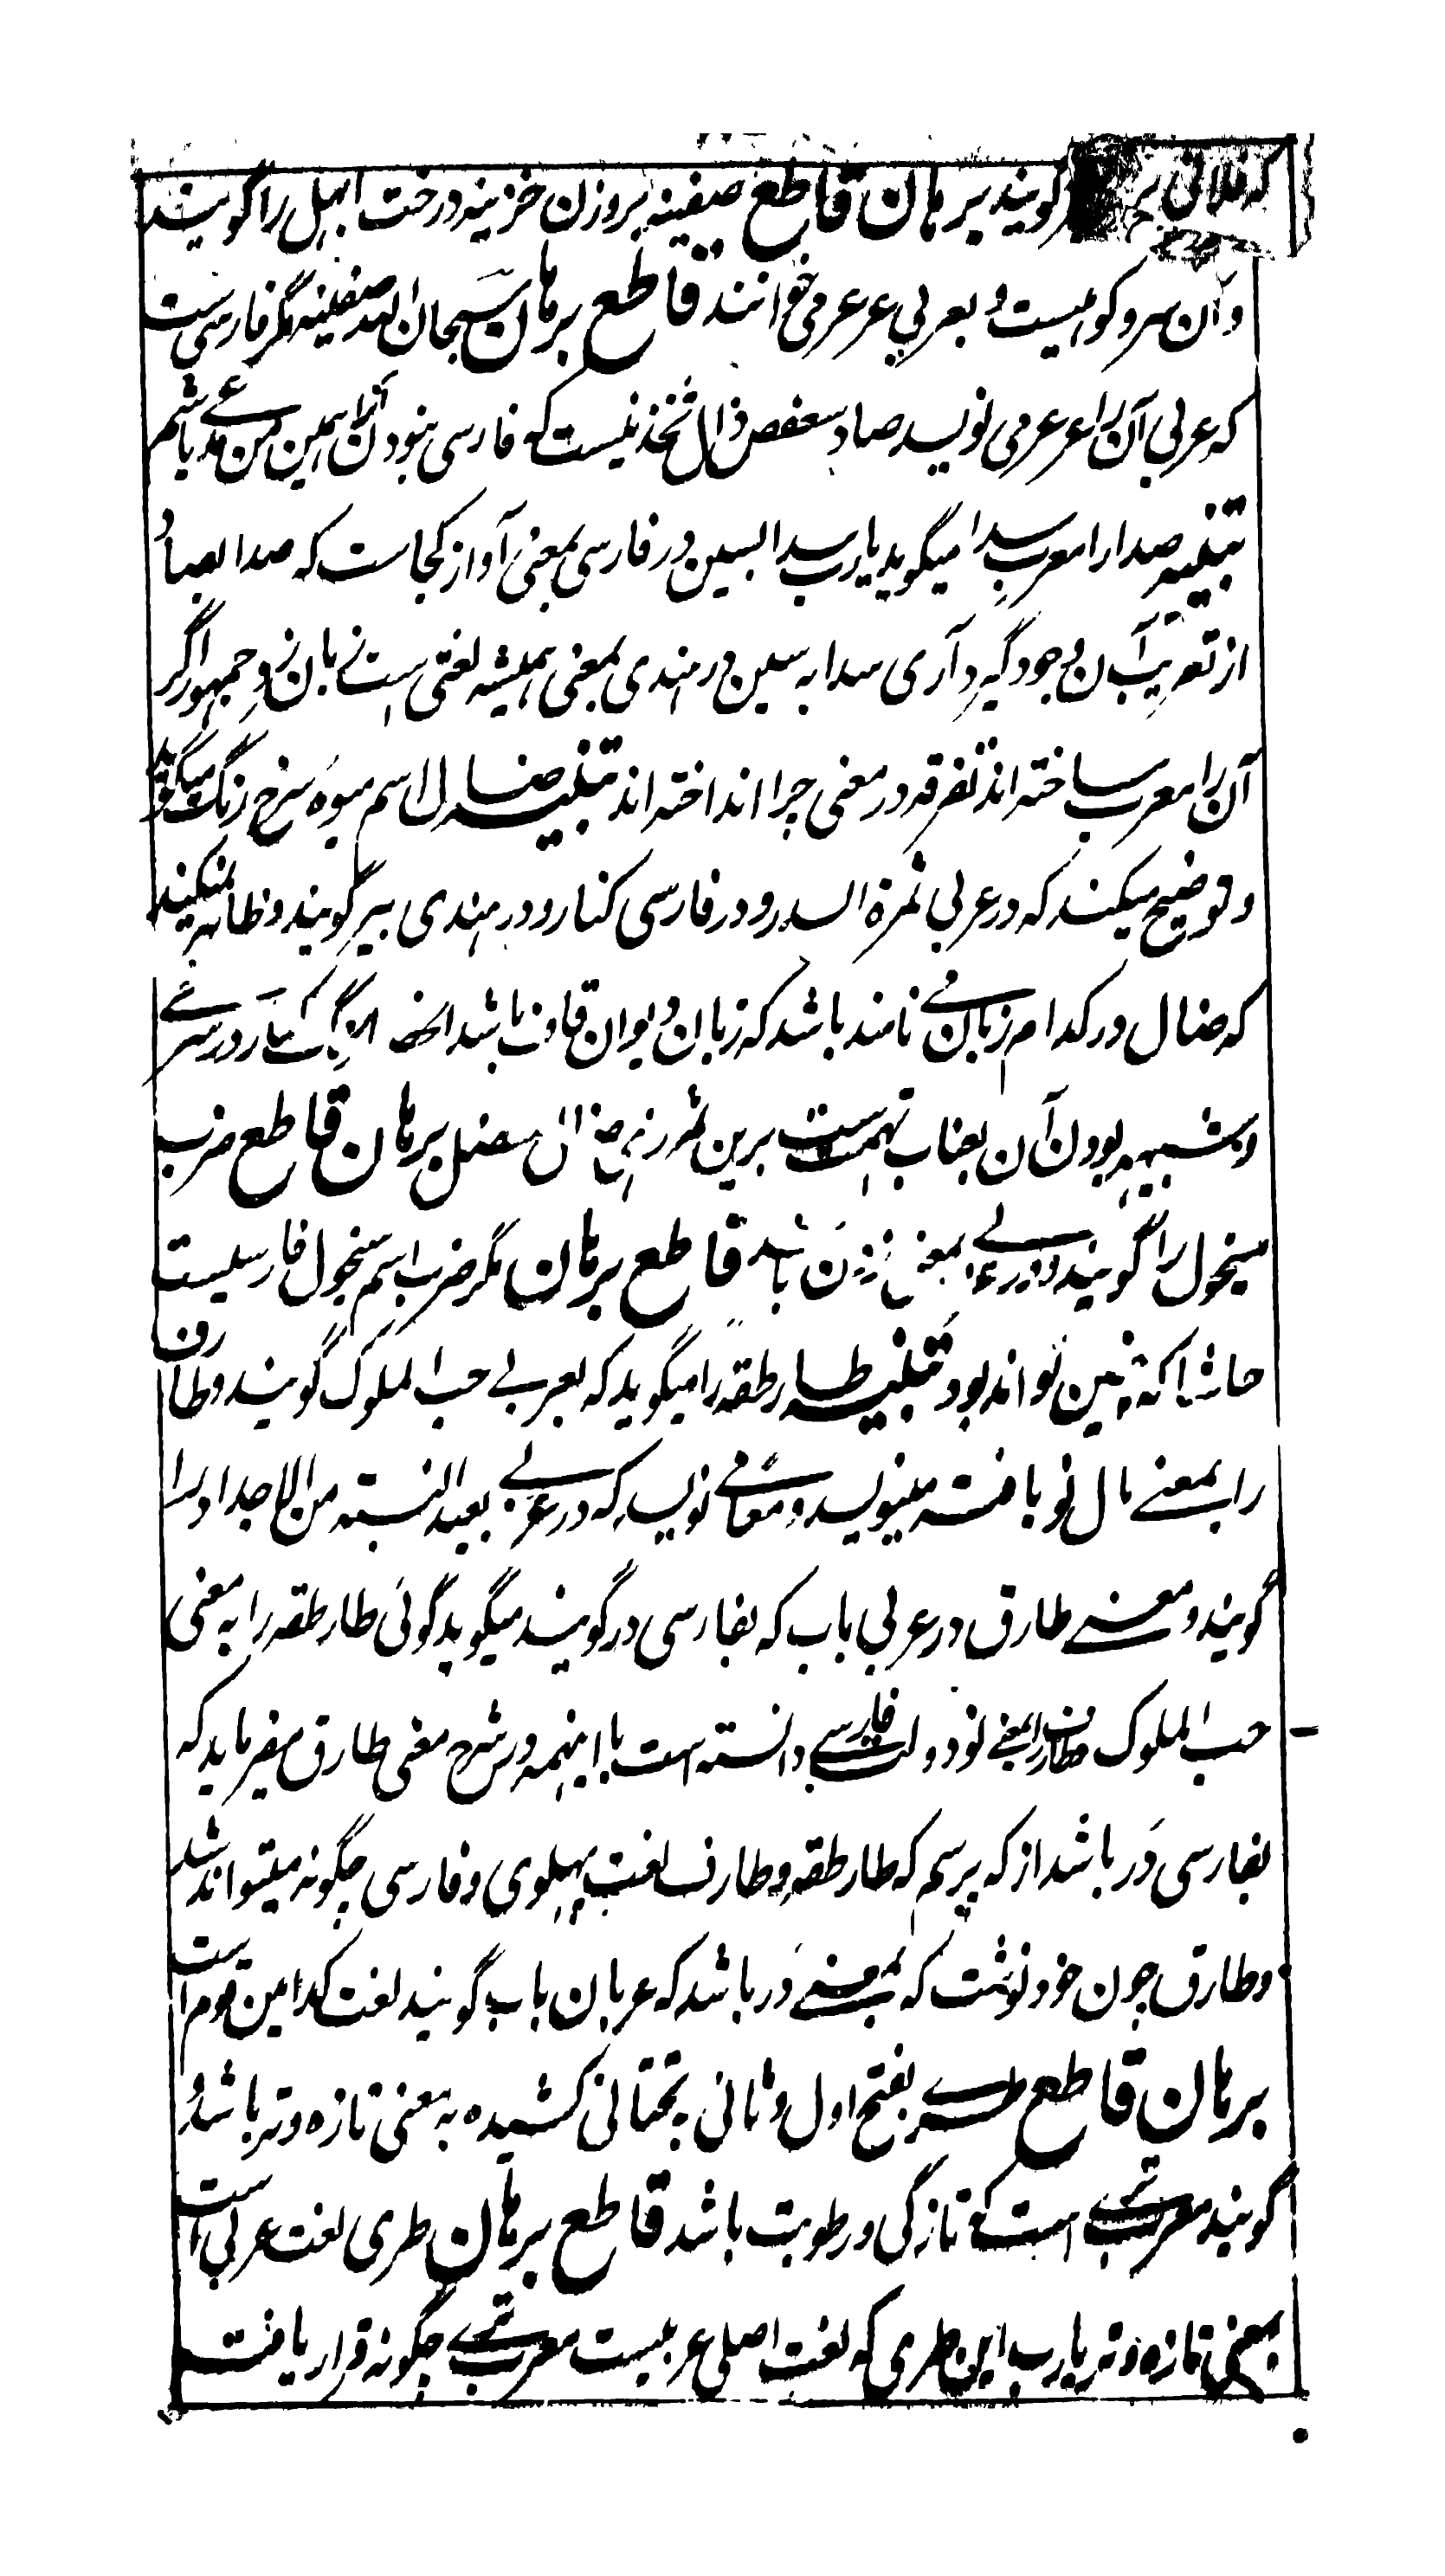 که فلانی بر گویند برهان قاطع صیفینه بروزن خزینه درخت ابهل را گویند
و آن سرو کوهیست و بعربی عرعر می خوانند قاطع برهان سبحان الله صفینه مگر فارسی ست
که عربی آن را عرعر می نویسد صاد سعفص ذال ثخذ نیست که فارسی نبود آن را همین من مدعی باشم
تنبیه صدا را معرب سدا میگوید یارب سدا بسین در فارسی بمعنی آواز کجاست که صدا بصاد
از تعریب آن وجود گیرد آری سدا به سین در هندی بمعنی همیشه لغتی است زبان زد جمهور اگر
آن را معرب ساخته اند تفرقه در معنی چرا انداخته اند تنبیه ضال اسم میوه سرخ رنگ میگوید
و توضیح میکند که در عربی ثمرة السدر و در فارسی کنار و در هندی بیر گویند و ظاهر نمیکند
که ضال در کدام زبان می نامند باشد که زبان دیوان قاف باشد رنگ کنار در سرخی
و شبیه بودن آن بعناب تهمتست برین ثمر برهان قاطع ضرب
منجول را گویند و در عربی بمعنی زدن باشد قاطع برهان مگر ضرب اسم منجول فارسیست
حاشا که چنین تواند بود تنبیه طارطقه را میگوید که بعربی حب الملوک گویند و طارف
را بمعنی مال نو یافته مینویسد و معاً می نویسد که در عربی بعید النسبته من الاجداد را
گویند و معنی طارق در عربی باب که بفارسی در گویند میگوید گوئی طارطقه را به معنی
حب الملوک و طارف را بمعنی نو دولت فارسی دانسته است با اینهمه در شرح معنی طارق میفرماید که
بفارسی در باشد از که پرسم که طارطقه و طارف لغت پهلوی و فارسی چگونه میتواند شد
و طارق چون خود نوشت که بمعنی در باشد که عربان باب گویند لغت کدامین قوم است
برهان قاطع طری بفتح اول و ثانی بتحتانی کشیده به معنی تازه و تر باشد و
گویند معرب تری است که تازگی و رطوبت باشد قاطع برهان طری لغت عربی است
بمعنی تازه و تر یارب این طری که لغت اصلی عربیست معرب تری چگونه قرار یافت